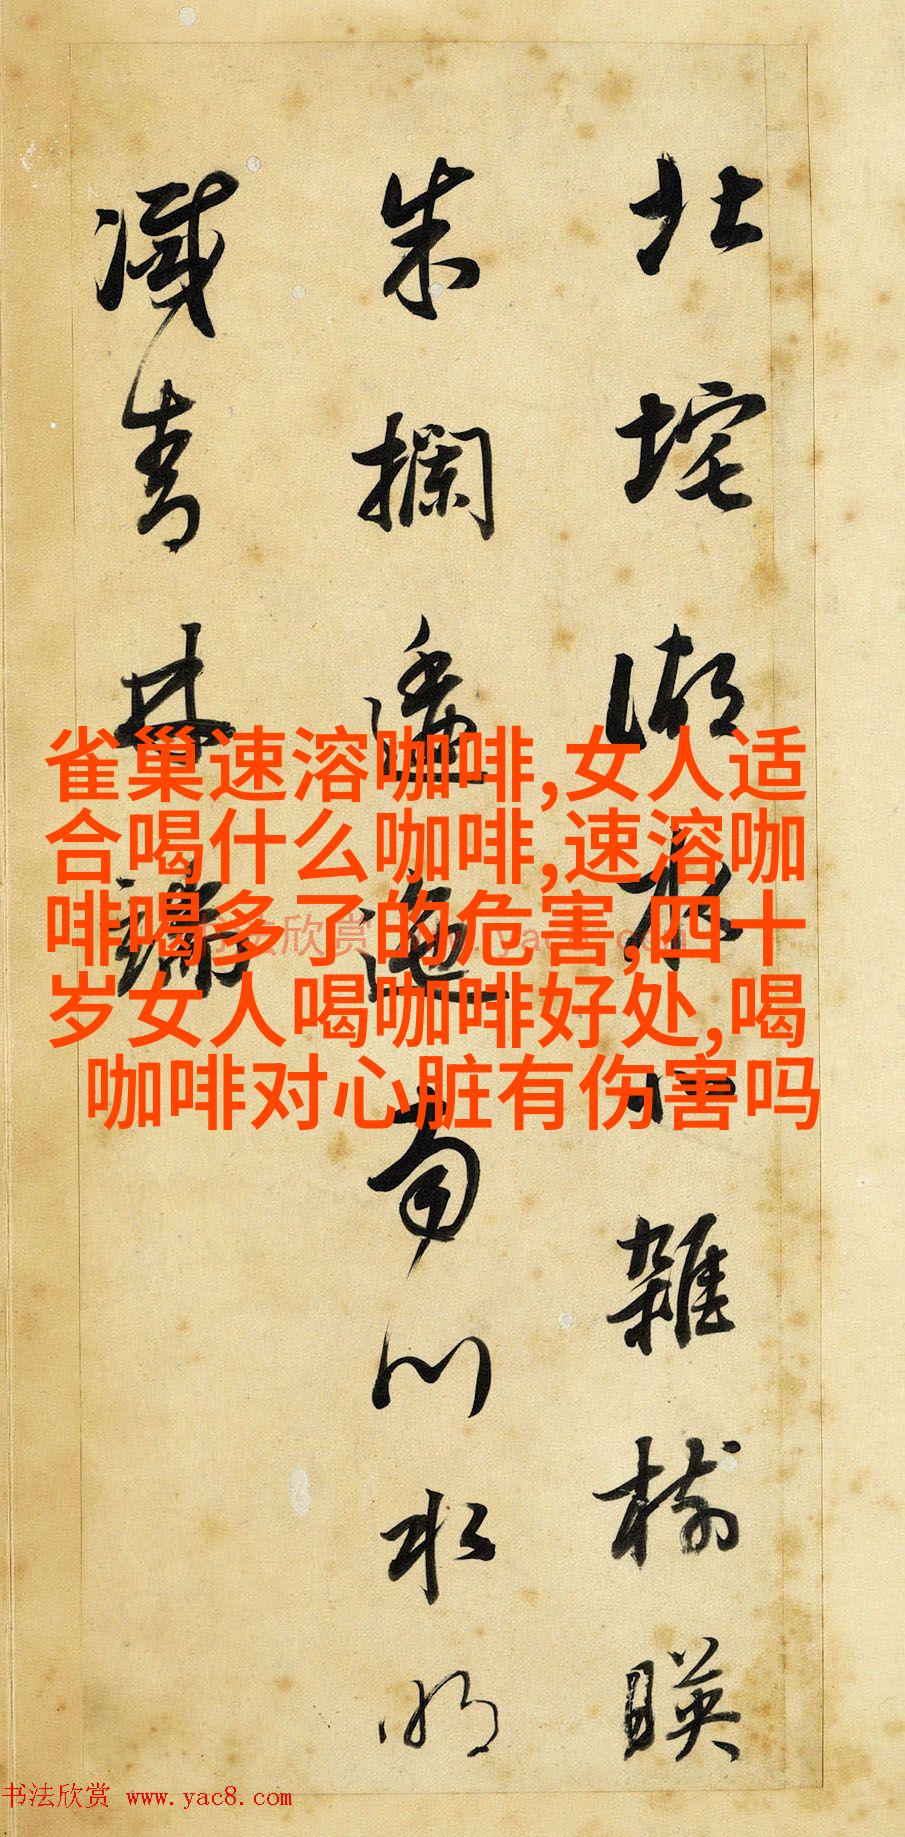 北垞湖水北雜樹暎
朱欄逶迤南川水明
滅青林端
雀巢速溶咖啡,女人适
合喝什么咖啡,速溶咖
啡喝多了的危害,四十
岁女人喝咖啡好处,喝
咖啡对心脏有伤害吗
书法欣赏 www.yac8.com